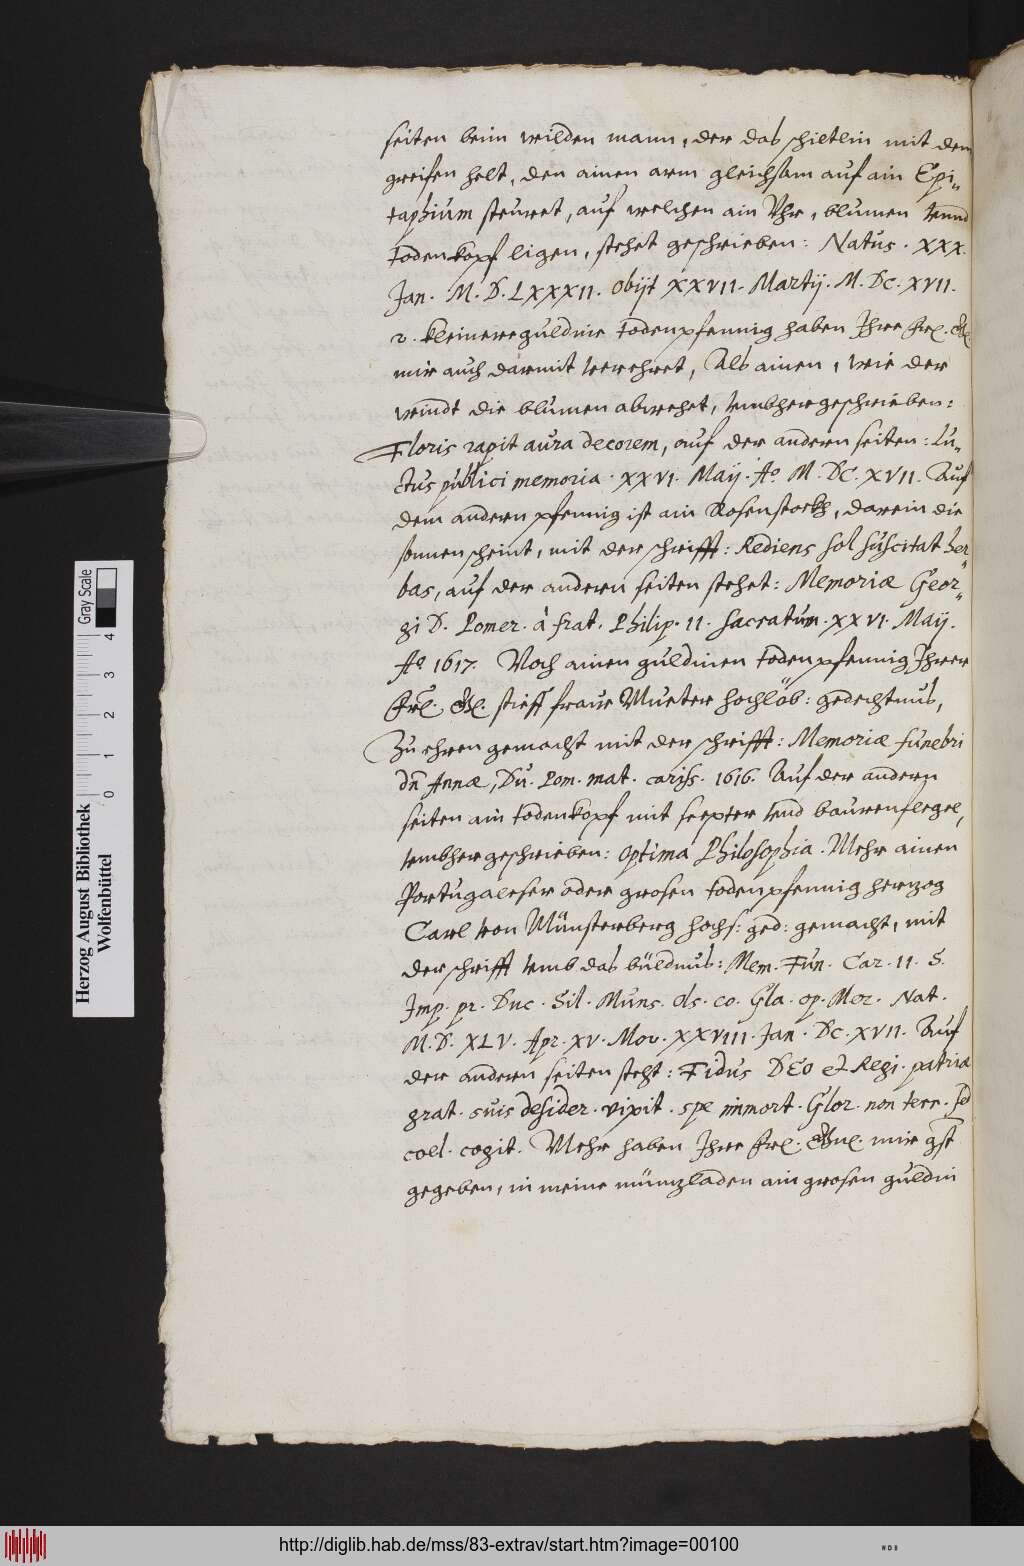 seiten beim wilden mann, der das schiltlin mit dem
greifen helt, den ainen arm gleichsam auf ain Epi„
taphium steuret, auf welchen ain Uhr, blumen vnnd
todenkopf ligen, stehet geschrieben: Natus. XXX.
Jan. M. D. LXXXII. Obijt XXVII. Martij. M. DC. XVII.
2. kleinere guldine todenpfennig haben Ihre frl. Gn.
mir auch darmit verehret, Als ainen, wie der
windt die blumen abwehet, vmbher geschrieben:
Floris rapit aura decorem, auf der andern seiten: Lu„
ctus publici memoria. XXVI. Maij. Aº M. DC. XVII. Auf
dem andern pfennig ist ain Rosenstockh, darein die
sonnen scheint, mit der schrifft: Rediens sol suscitat her„
bas, auf der andern seiten stehet: Memoriæ Geor„
gi D. Pomer. à frat. Philip. II. sacratum. XXVI. Maij.
Aº 1617. Noch ainen guldinen todenpfennig Ihrer
frl. Gn. stieff fraw Mueter hochlöb: gedechtnus,
Zu ehren gemacht mit der schrifft: Memoriæ funebri
dn̄ Annæ, Du. Pom. mat. cariss. 1616. Auf der andern
seiten ain todenkopf mit scepter vnd baurenflegel,
vmbher geschrieben: Optima Philosophia. Mehr ainen
Portugaleser oder grosen todenpfennig herzog
Carl von Münsterberg hochs: ged: gemacht, mit
der schrifft vmb das büldnus: Mem. Fun. Car. II. S.
Imp. pr. Duc. Sil. Muns. Ols. co. Gla. op. Mer. Nat.
M. D. XLV. Apr. XV. Mov. XXVIII. Jan. DC. XVII. Auf
der andern seiten steht: Fidus DEO et Regi. patriæ
grat. suis desider. vixit. spe immort. Glor. non terr. sed
coel. cogit. Mehr haben Ihre frl. Gn. mir gst
gegeben, in meine münzladen ain grosen guldin
Herzog August Bibliothek
Wolfenbüttel
Gray Scale
0 1 2 3 4
http://diglib.hab.de/mss/83-extrav/start.htm?image=00100